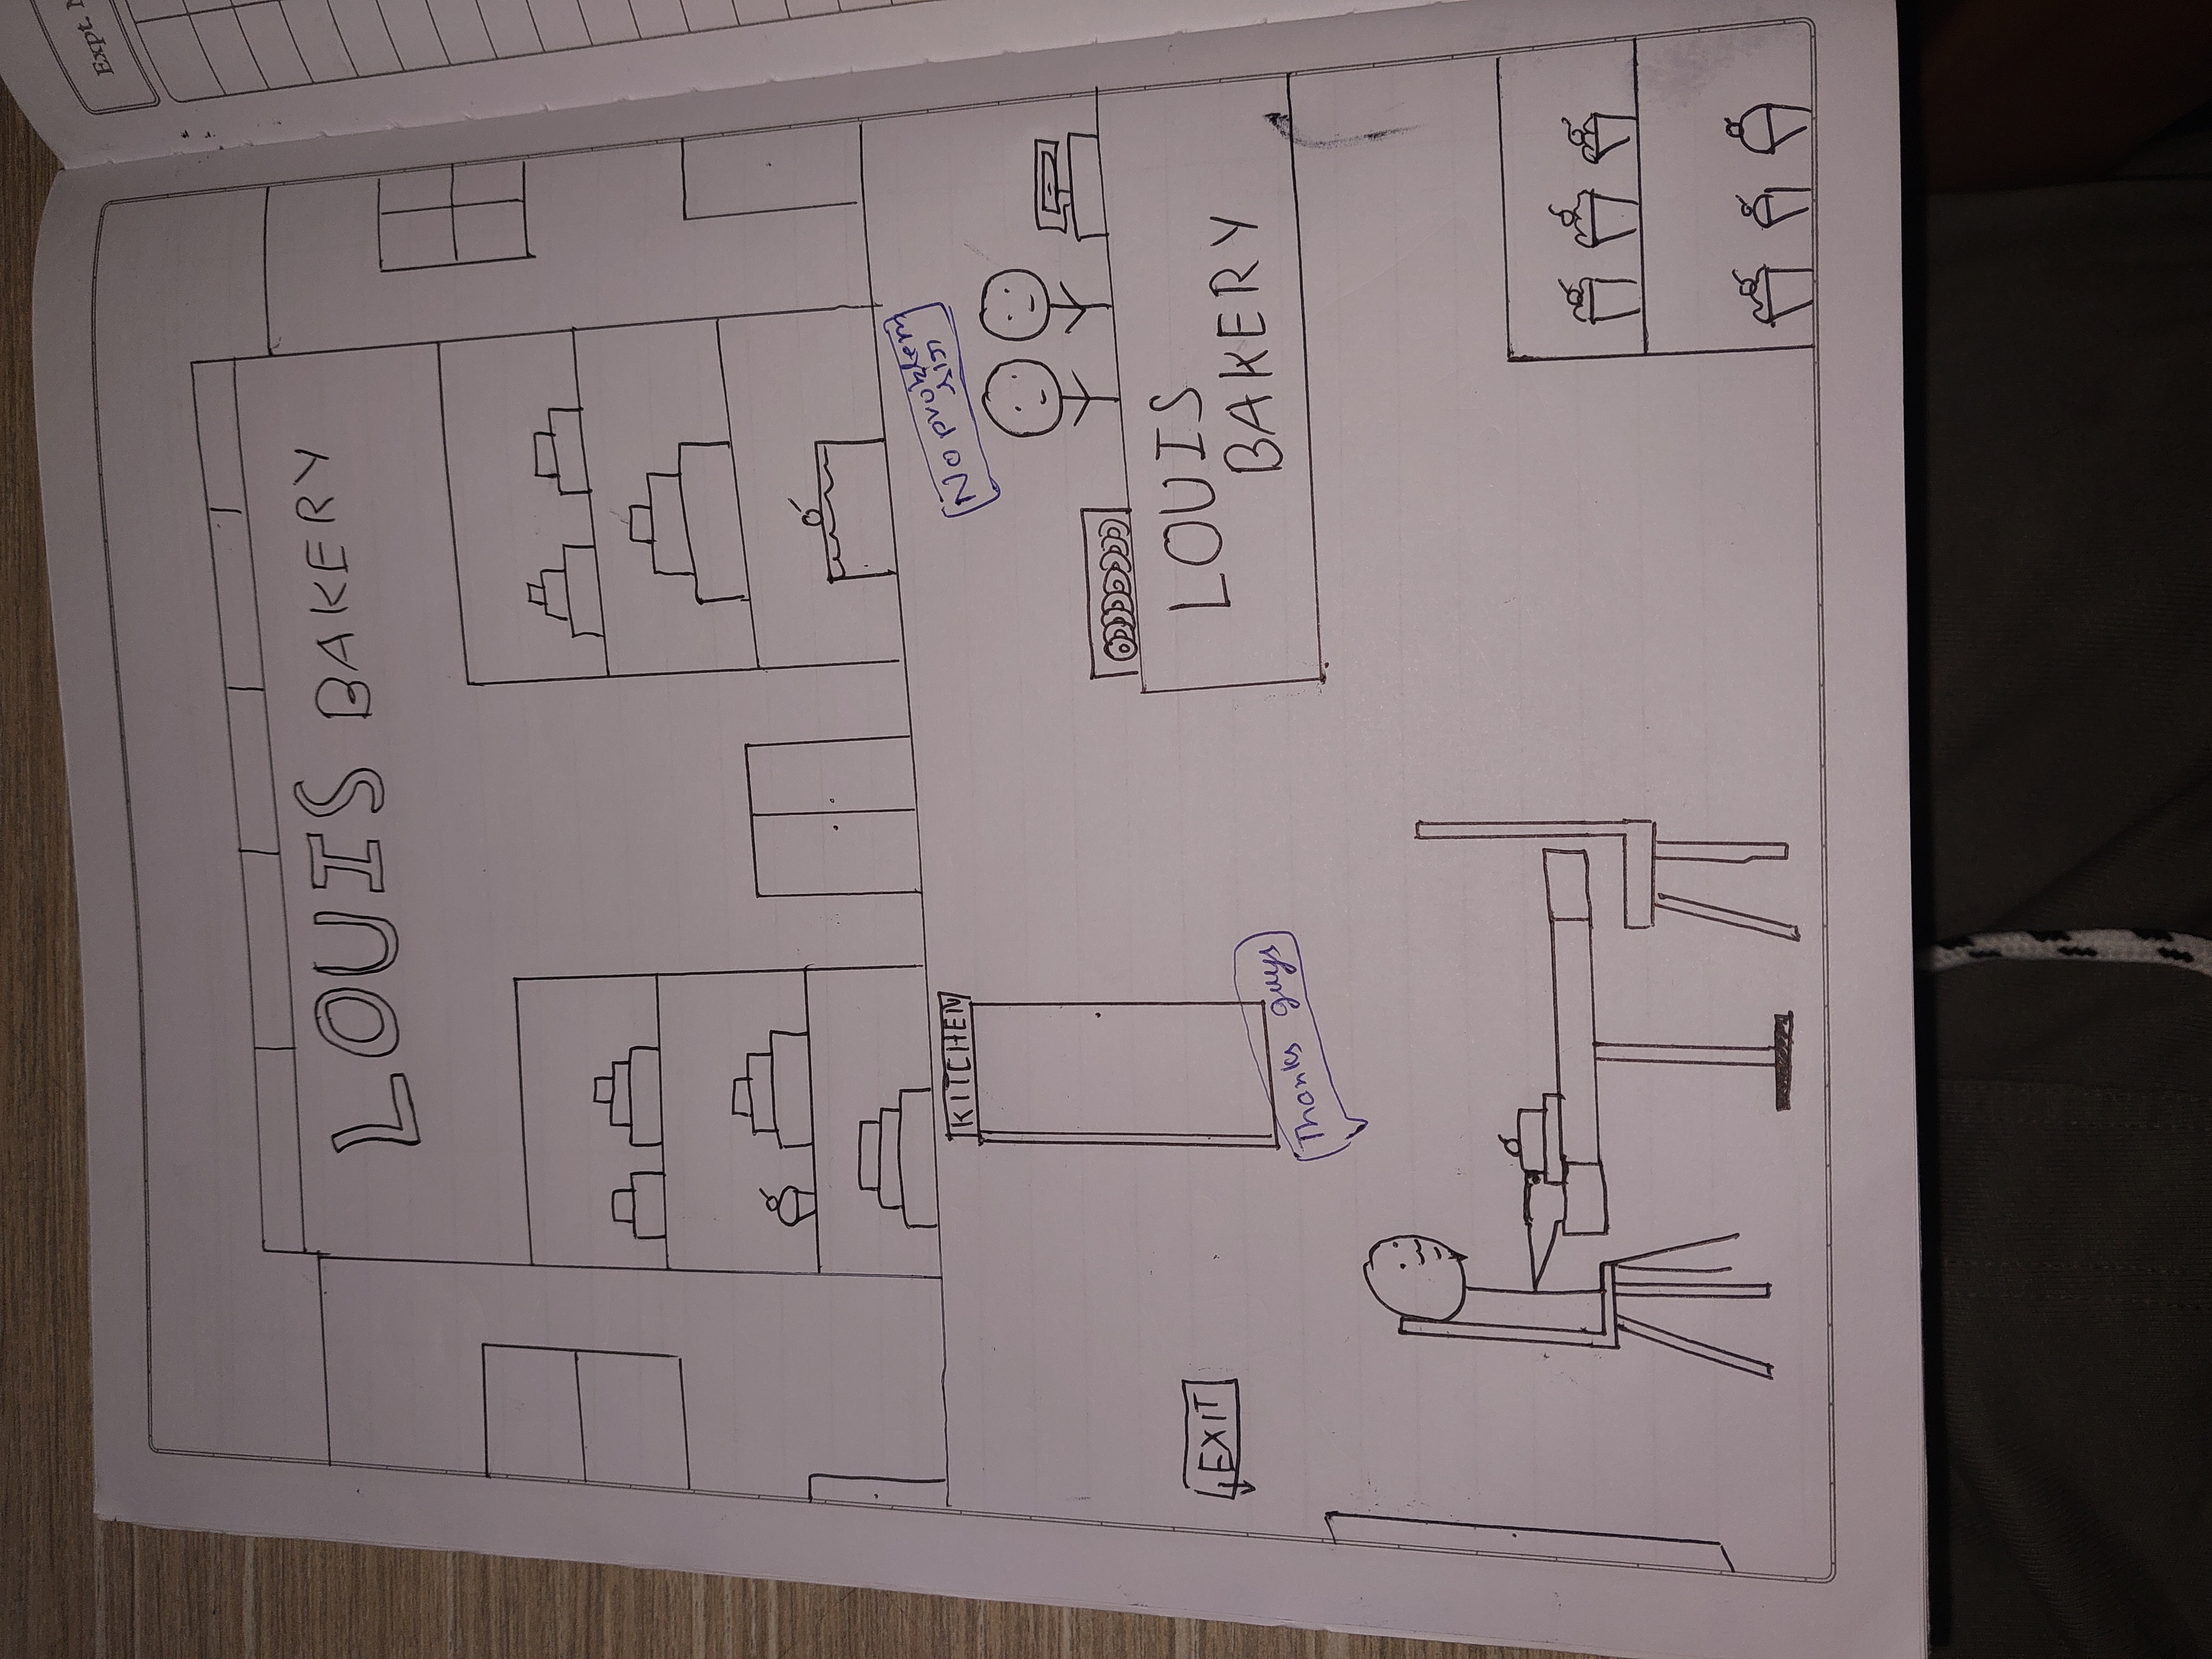 Expt. N
LOUIS BAKERY
KITCHEN
No problem
sir
LOUIS
BAKERY
EXIT
Thanks guys